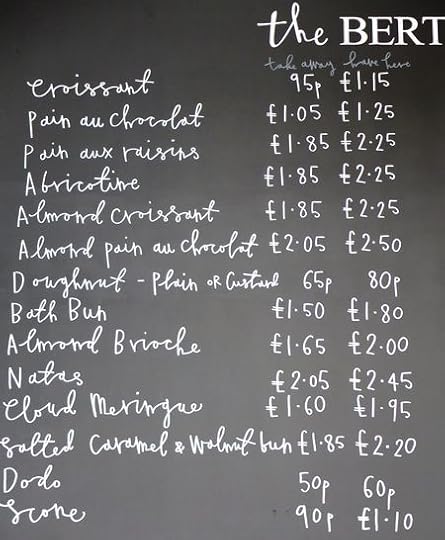 the BERT
take away have here
Croissant 95p £1.15
Pain au chocolat £1.05 £1.25
Pain aux raisins £1.85 £2.25
Abricotine £1.85 £2.25
Almond Croissant £1.85 £2.25
Almond pain au chocolat £2.05 £2.50
Doughnut - Plain OR Custard 65p 80p
Bath Bun £1.50 £1.80
Almond Brioche £1.65 £2.00
Natas £2.05 £2.45
Cloud Meringue £1.60 £1.95
Salted Caramel & Walnut bun £1.85 £2.20
Dodo 50p 60p
Scone 90p £1.10